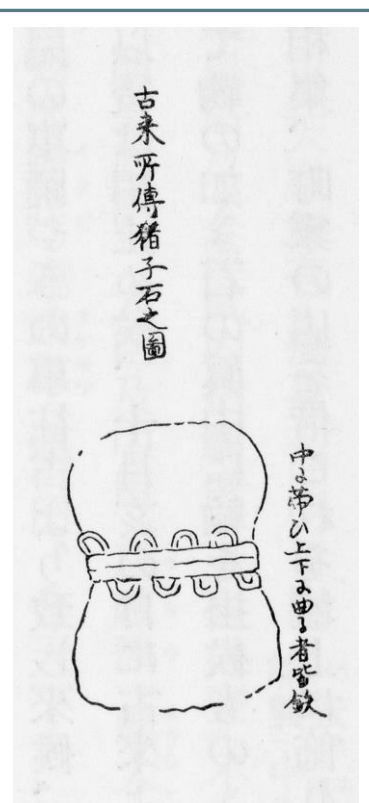 古来所傳猪子石之圖
中に帯ひ上下に曲る者皆鉄